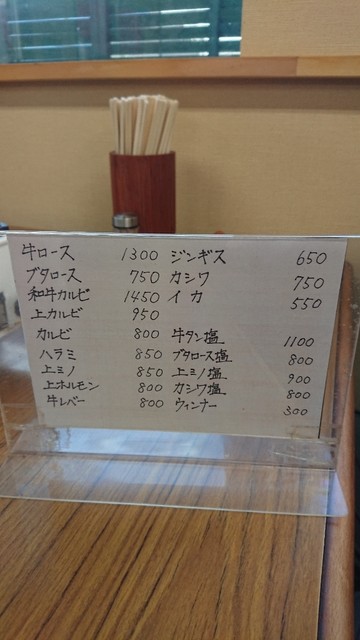 牛ロース 1300
ブタロース 750
和牛カルビ 1450
上カルビ 950
カルビ 800
ハラミ 850
上ミノ 850
上ホルモン 800
牛レバー 800
ジンギス 650
カシワ 750
イカ 550
牛タン塩 1100
ブタロース塩 800
上ミノ塩 900
カシワ塩 800
ウィンナー 300